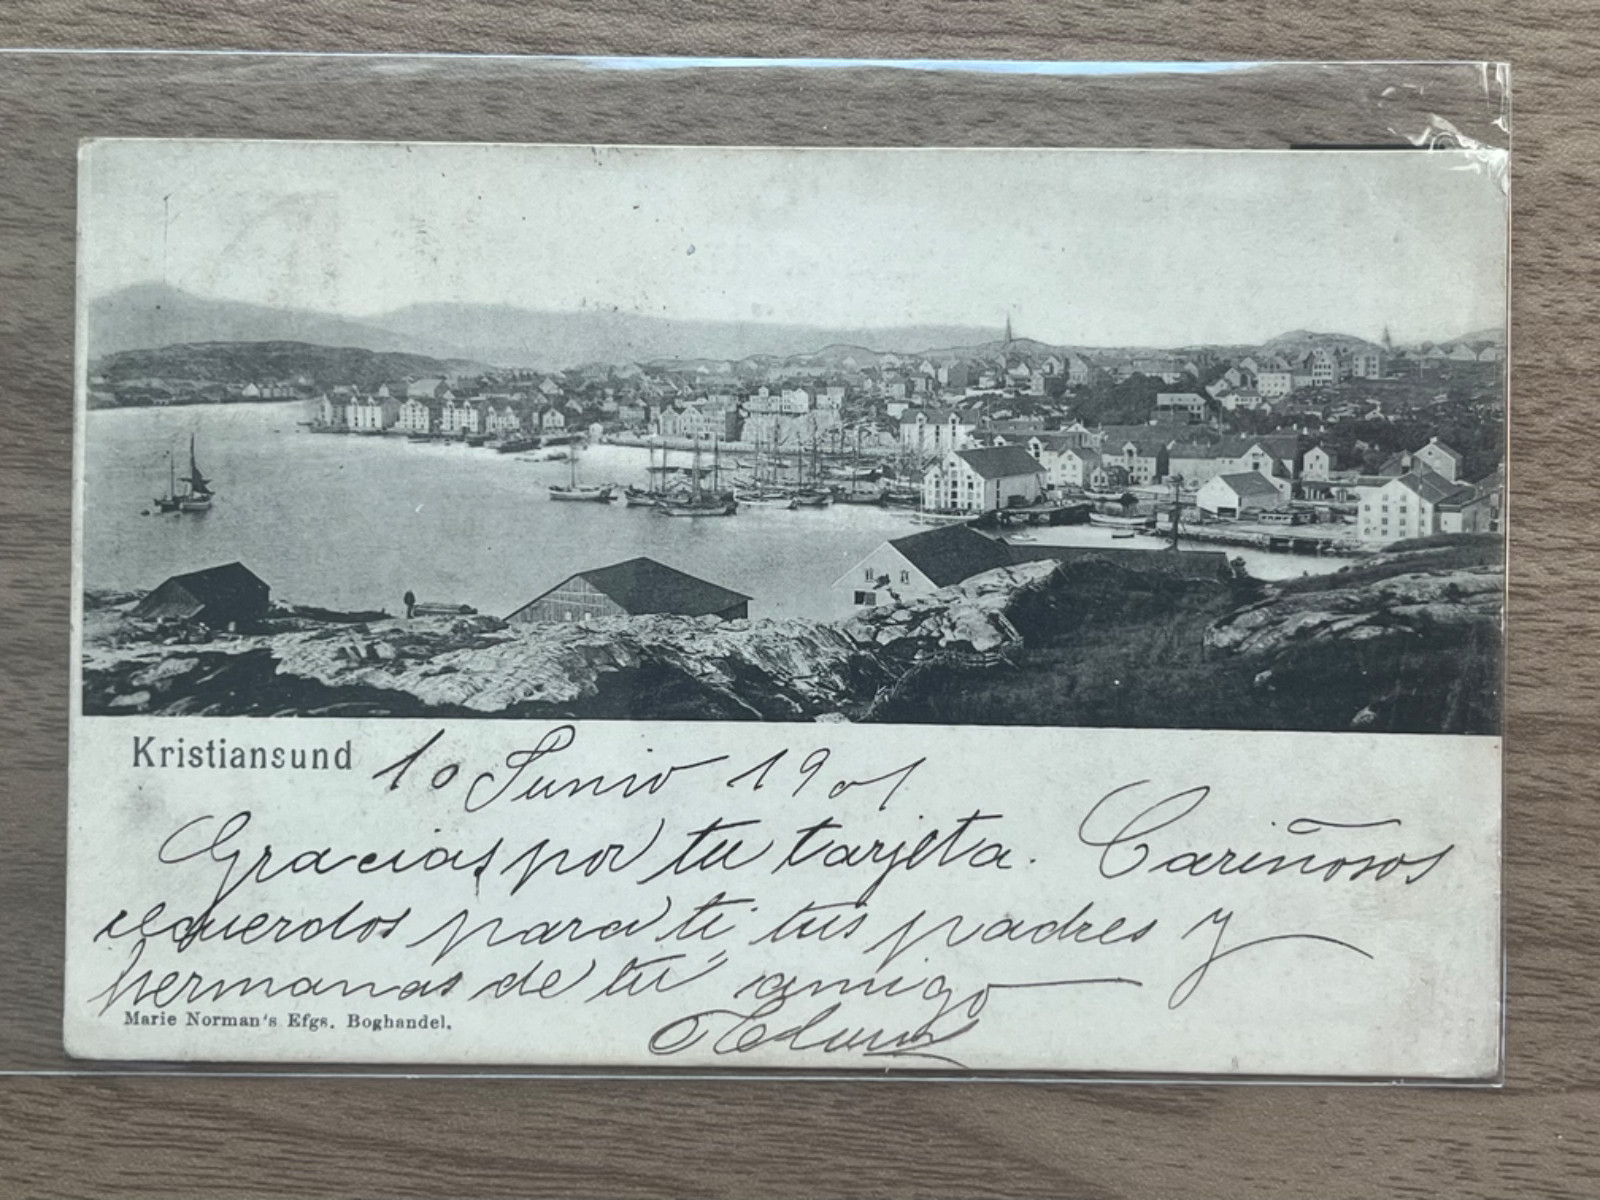 Kristiansund 10 Junio 1901
Gracias por tu tarjeta. Cariñosos
recuerdos para ti tus padres y
hermanas de tu amigo
Marie Norman's Efgs. Boghandel.